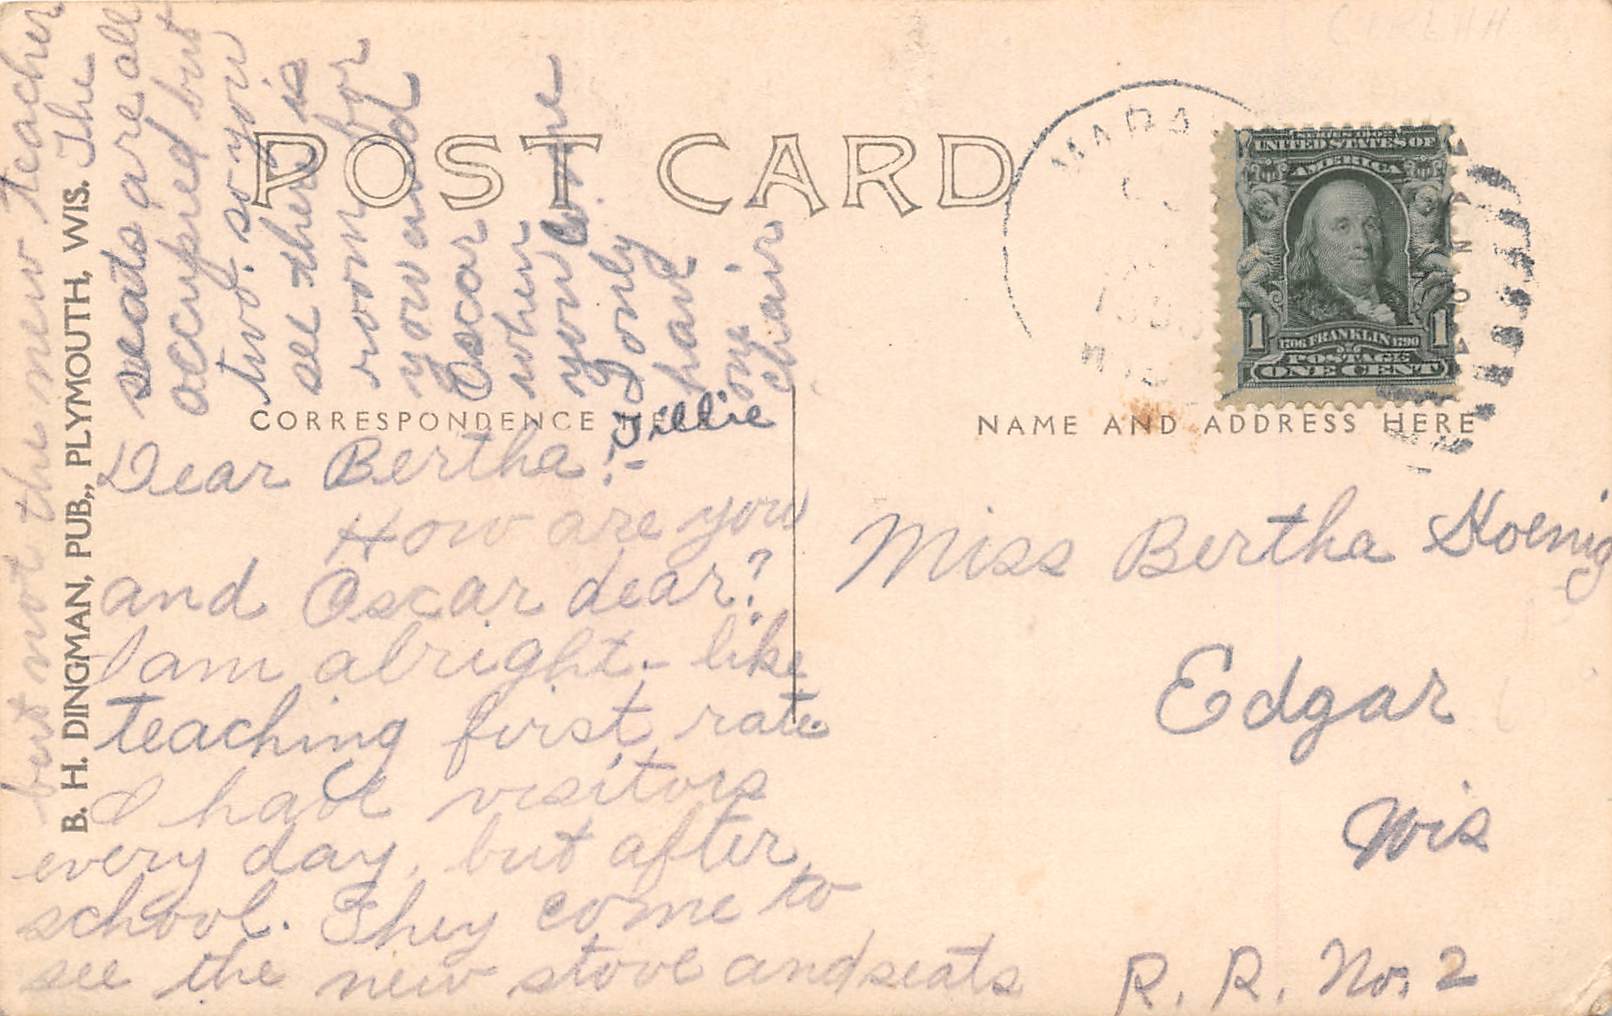 POST CARD
CORRESPONDENCE HERE
NAME AND ADDRESS HERE
B. H. DINGMAN, PUB., PLYMOUTH, WIS.
Dear Bertha:-
How are you
and Oscar dear?
I am alright - like
teaching first rate.
I have visitors
every day, but after
school. They come to
see the new stove and seats
but not the new teacher
The
seats are all
occupied but
two. so you
see there is
room for
you and
Oscar
when
you come
I only
have
my
chair
Tillie
Miss Bertha Koenig
Edgar
Wis
R. R. No. 2
UNITED STATES OF
AMERICA
1 1
1706 FRANKLIN 1790
POSTAGE
ONE CENT